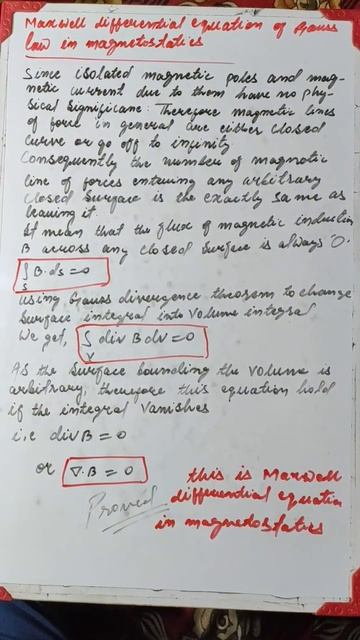 Maxwell differential equation of Gauss
law in magnetostatics
Since isolated magnetic poles and mag-
netic current due to them have no phy-
sical significane. Therefore magnetic lines
of force in general are either closed
curve or go off to infinity
Consequently the number of magnetic
line of forces entering any arbitrary
closed surface is the exactly same as
leaving it.
It mean that the flux of magnetic induction
B across any closed surface is always 0.
∫s B.ds = 0
using Gauss divergence theorem to change
surface integral into volume integral
We get, ∫v div B dv = 0
As the surface bounding the volume is
arbitrary, therefore this equation hold
if the integral vanishes
i.e div B = 0
or ∇.B = 0
Proved
this is Maxwell
differential equatio
in magnetostatics